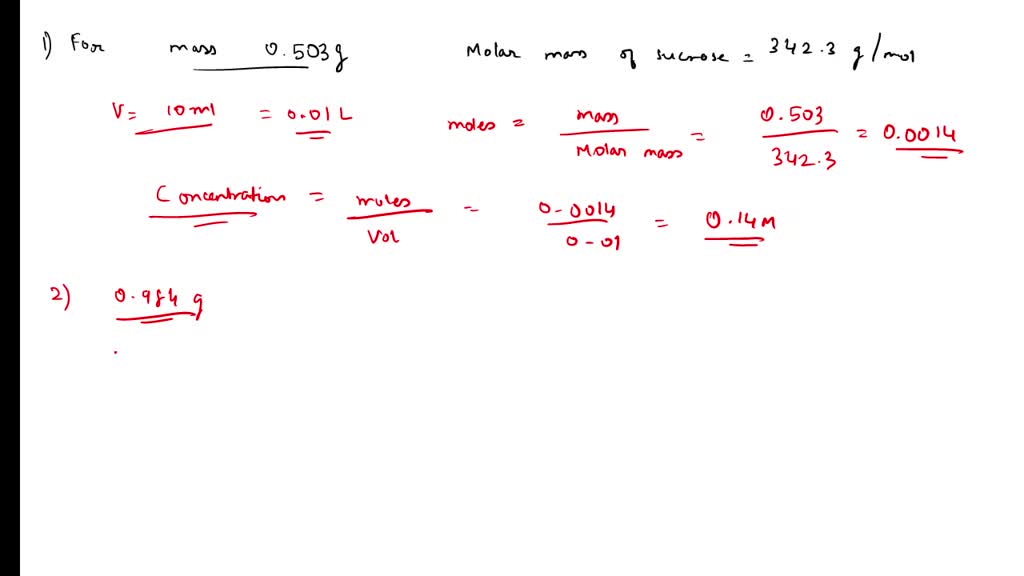 1) For mass 0.503g Molar mass of sucrose = 342.3 g/mol
V= 10 ml = 0.01 L
moles = mass / Molar mass = 0.503 / 342.3 = 0.0014
Concentration = moles / Vol = 0-0014 / 0-01 = 0.14M
2) 0.984 g